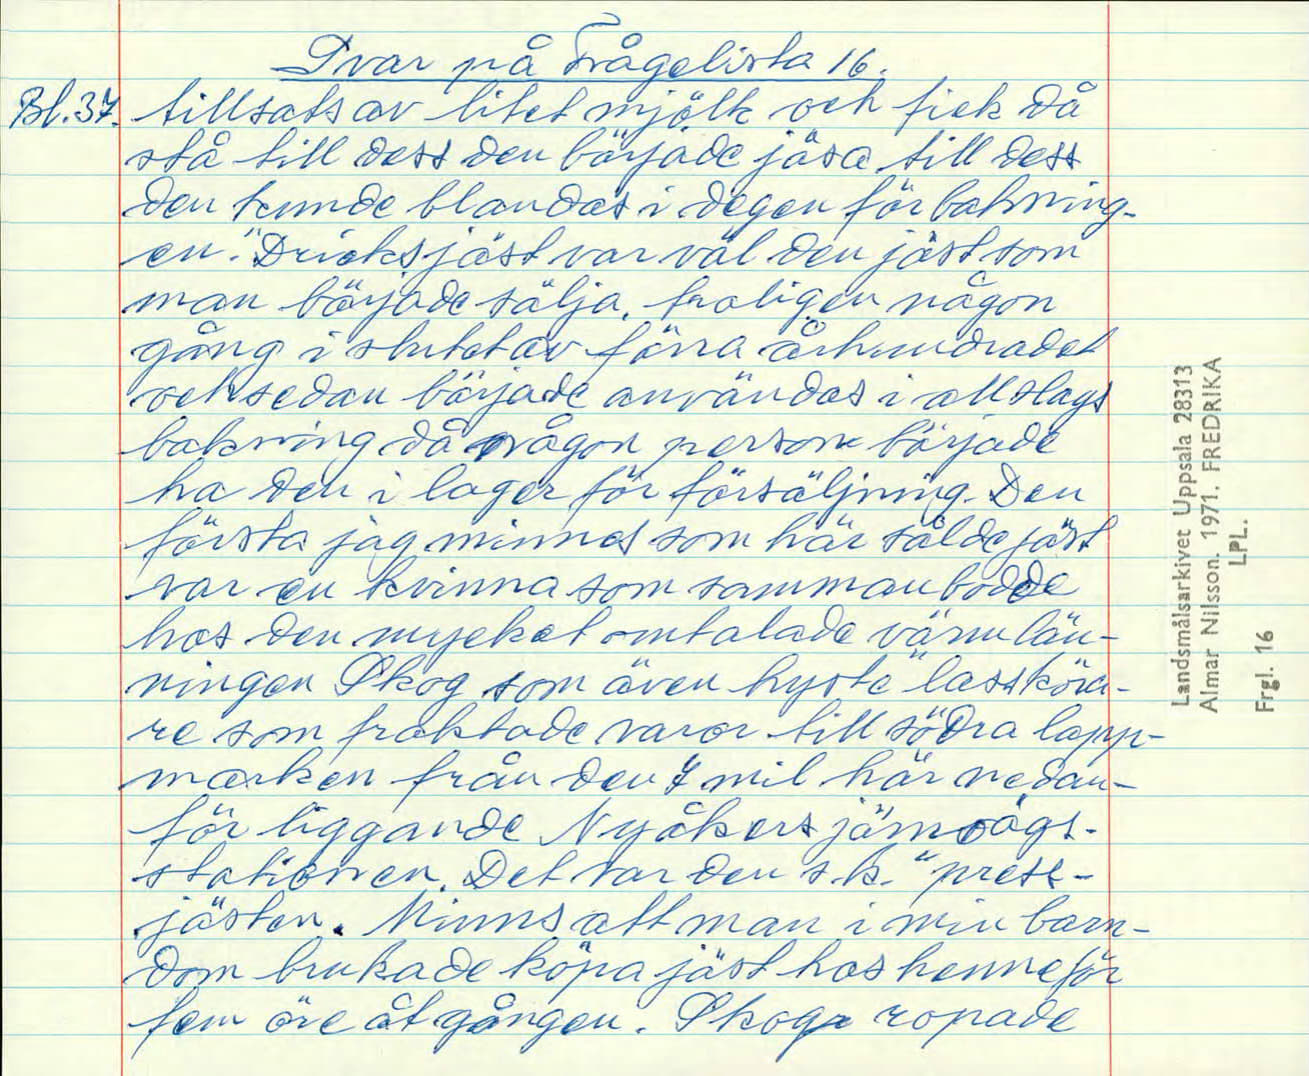 Svar på Frågelista 16.
Bl. 37. tillsats av litet mjölk och fick då
stå till dess den började jäsa, till dess
den kunde blandas i degen för bakning-
en." Dricksjäst var väl den jäst som
man började sälja, troligen någon
gång i slutet av förra århundradet
och sedan började användas i all slags
bakning då någon person började
ha den i lager för försäljning. Den
första jag minnes som här sålde jäst
var en kvinna som sammanbodde
hos den mycket omtalade värmlän-
ningen Skog som även hyste "lassköra-
re som fraktade varor till södra lapp-
marken från den 7 mil här nedan-
för liggande Nyåkers järnvägs-
stationen. Det var den s.k. "press-
jästen. Minns att man i min barn-
dom brukade köpa jäst hos henne för
fem öre åt gången. Skog ropade
Landsmålsarkivet Uppsala 28313
Almar Nilsson. 1971. FREDRIKA
LPL.
Frgl. 16